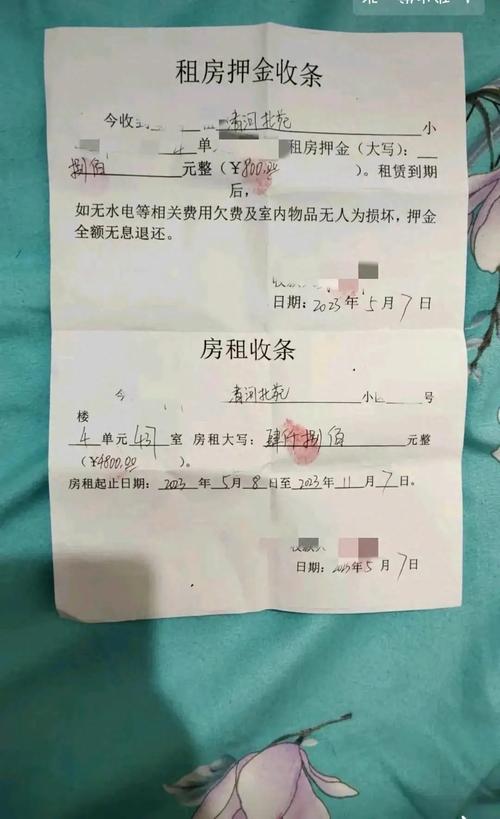 租房押金收条
今收到 清河北苑 小
4 单 租房押金（大写）：
捌佰 元整（￥800.00 ）。租赁到期
后，
如无水电等相关费用欠费及室内物品无人为损坏，押金
全额无息退还。
收款
日期：2023年5月7日
房租收条
今 清河北苑 小 号
楼
4 单元 437 室 房租大写：肆仟捌佰 元整
（￥4800.00 ）。
房租起止日期：2023 年 5 月 8 日至 2023 年 11 月 7 日。
收款人
日期：2023年5月7日